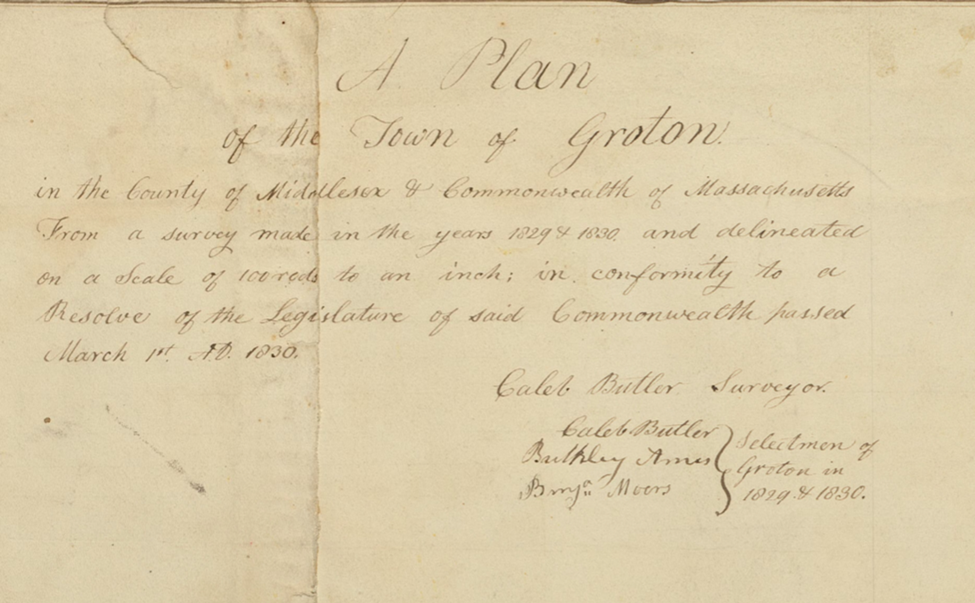 A Plan
of the Town of Groton.
in the County of Middlesex & Commonwealth of Massachusetts
From a survey made in the years 1829 & 1830. and delineated
on a Scale of 100 rods to an inch; in conformity to a
Resolve of the Legislature of said Commonwealth passed
March 1st. A.D. 1830.
Caleb Butler Surveyor.
Caleb Butler
Bulkley Ames
Benjan. Moors
Selectmen of
Groton in
1829 & 1830.